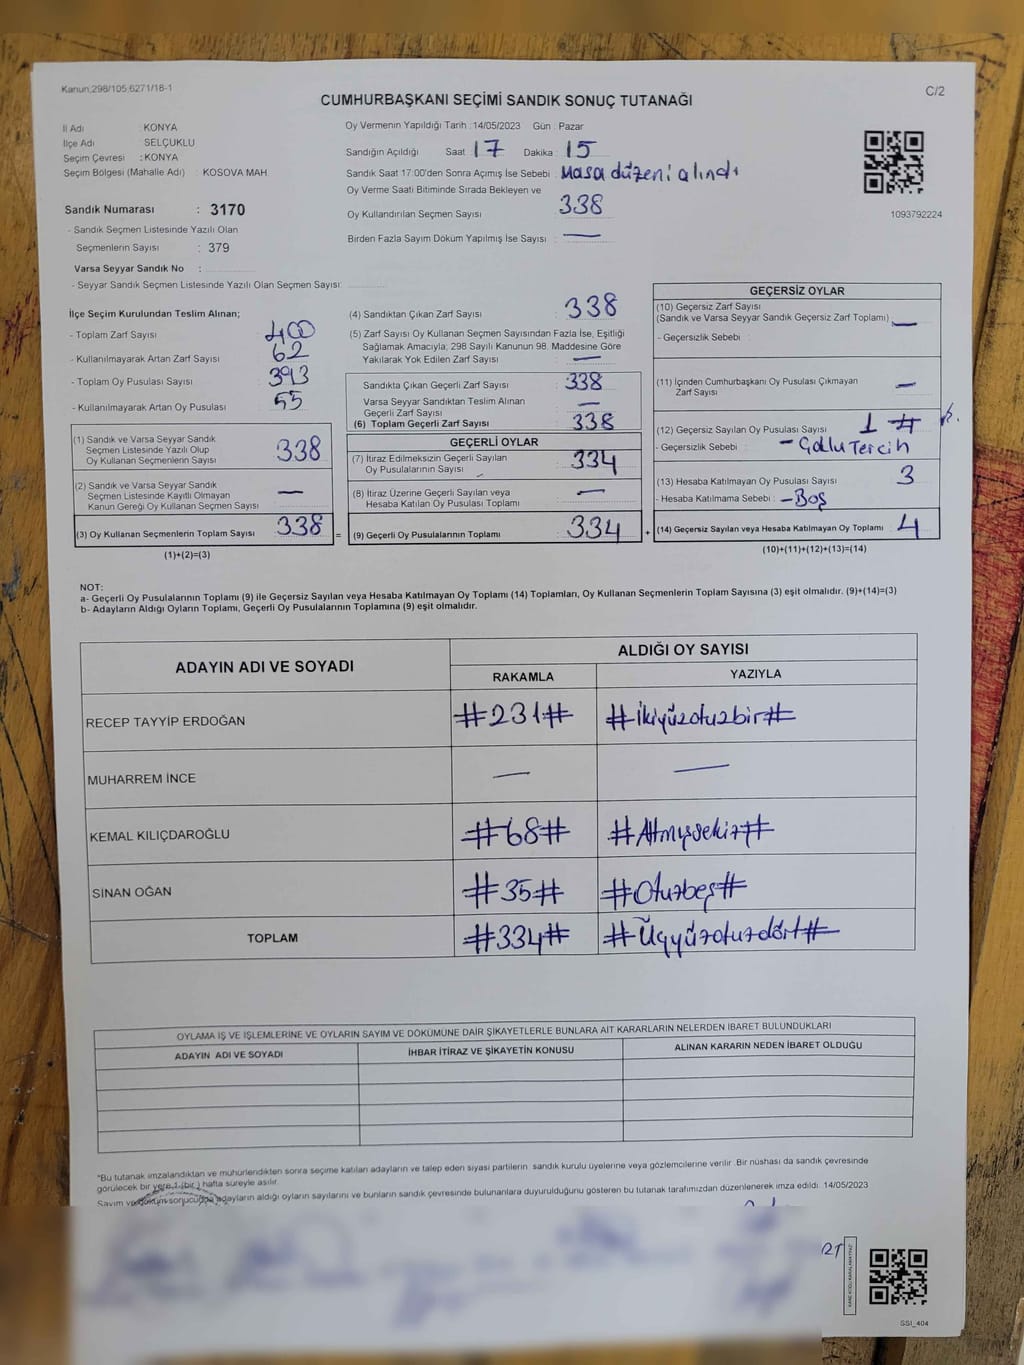 Kanun,298/105,6271/18-1
C/2
CUMHURBAŞKANI SEÇİMİ SANDIK SONUÇ TUTANAĞI
İl Adı : KONYA
İlçe Adı : SELÇUKLU
Seçim Çevresi : KONYA
Seçim Bölgesi (Mahalle Adı) : KOSOVA MAH.
Sandık Numarası : 3170
- Sandık Seçmen Listesinde Yazılı Olan
Seçmenlerin Sayısı : 379
Varsa Seyyar Sandık No :
- Seyyar Sandık Seçmen Listesinde Yazılı Olan Seçmen Sayısı:
Oy Vermenin Yapıldığı Tarih : 14/05/2023 Gün : Pazar
Sandığın Açıldığı Saat 17 Dakika : 15
Sandık Saat 17:00'den Sonra Açımış İse Sebebi : Masa düzeni alındı
Oy Verme Saati Bitiminde Sırada Bekleyen ve
Oy Kullandırılan Seçmen Sayısı 338
Birden Fazla Sayım Döküm Yapılmış İse Sayısı : —
1093792224
İlçe Seçim Kurulundan Teslim Alınan;
- Toplam Zarf Sayısı : 400
- Kullanılmayarak Artan Zarf Sayısı : 62
- Toplam Oy Pusulası Sayısı : 393
- Kullanılmayarak Artan Oy Pusulası : 55
(1) Sandık ve Varsa Seyyar Sandık
Seçmen Listesinde Yazılı Olup
Oy Kullanan Seçmenlerin Sayısı : 338
(2) Sandık ve Varsa Seyyar Sandık
Seçmen Listesinde Kayıtlı Olmayan
Kanun Gereği Oy Kullanan Seçmen Sayısı : —
(3) Oy Kullanan Seçmenlerin Toplam Sayısı : 338
(1)+(2)=(3)
(4) Sandıktan Çıkan Zarf Sayısı : 338
(5) Zarf Sayısı Oy Kullanan Seçmen Sayısından Fazla İse, Eşitliği
Sağlamak Amacıyla; 298 Sayılı Kanunun 98. Maddesine Göre
Yakılarak Yok Edilen Zarf Sayısı : —
Sandıkta Çıkan Geçerli Zarf Sayısı : 338
Varsa Seyyar Sandıktan Teslim Alınan
Geçerli Zarf Sayısı : —
(6) Toplam Geçerli Zarf Sayısı : 338
GEÇERLİ OYLAR
(7) İtiraz Edilmeksizin Geçerli Sayılan
Oy Pusulalarının Sayısı : 334
(8) İtiraz Üzerine Geçerli Sayılan veya
Hesaba Katılan Oy Pusulası Toplamı : —
= (9) Geçerli Oy Pusulalarının Toplamı : 334
GEÇERSİZ OYLAR
(10) Geçersiz Zarf Sayısı
(Sandık ve Varsa Seyyar Sandık Geçersiz Zarf Toplamı) : —
- Geçersizlik Sebebi :
(11) İçinden Cumhurbaşkanı Oy Pusulası Çıkmayan
Zarf Sayısı : —
(12) Geçersiz Sayılan Oy Pusulası Sayısı : 1 #
- Geçersizlik Sebebi : - Çoklu Tercih
(13) Hesaba Katılmayan Oy Pusulası Sayısı : 3
- Hesaba Katılmama Sebebi : - Boş
+ (14) Geçersiz Sayılan veya Hesaba Katılmayan Oy Toplamı : 4
(10)+(11)+(12)+(13)=(14)
NOT:
a- Geçerli Oy Pusulalarının Toplamı (9) ile Geçersiz Sayılan veya Hesaba Katılmayan Oy Toplamı (14) Toplamları, Oy Kullanan Seçmenlerin Toplam Sayısına (3) eşit olmalıdır. (9)+(14)=(3)
b- Adayların Aldığı Oyların Toplamı, Geçerli Oy Pusulalarının Toplamına (9) eşit olmalıdır.
ADAYIN ADI VE SOYADI
ALDIĞI OY SAYISI
RAKAMLA YAZIYLA
RECEP TAYYİP ERDOĞAN #231# #İkiyüzotuzbir#
MUHARREM İNCE — —
KEMAL KILIÇDAROĞLU #68# #Altmışsekiz#
SİNAN OĞAN #35# #Otuzbeş#
TOPLAM #334# #Üçyüzotuzdört#
OYLAMA İŞ VE İŞLEMLERİNE VE OYLARIN SAYIM VE DÖKÜMÜNE DAİR ŞİKAYETLERLE BUNLARA AİT KARARLARIN NELERDEN İBARET BULUNDUKLARI
ADAYIN ADI VE SOYADI İHBAR İTİRAZ VE ŞİKAYETİN KONUSU ALINAN KARARIN NEDEN İBARET OLDUĞU
*Bu tutanak imzalandıktan ve mühürlendikten sonra seçime katılan adayların ve talep eden siyasi partilerin sandık kurulu üyelerine veya gözlemcilerine verilir. Bir nüshası da sandık çevresinde
görülecek bir yere 1 (bir) hafta süreyle asılır.
Sayım ve döküm sonucunda adayların aldığı oyların sayılarını ve bunların sandık çevresinde bulunanlara duyurulduğunu gösteren bu tutanak tarafımızdan düzenlenerek imza edildi. 14/05/2023
SSI_404